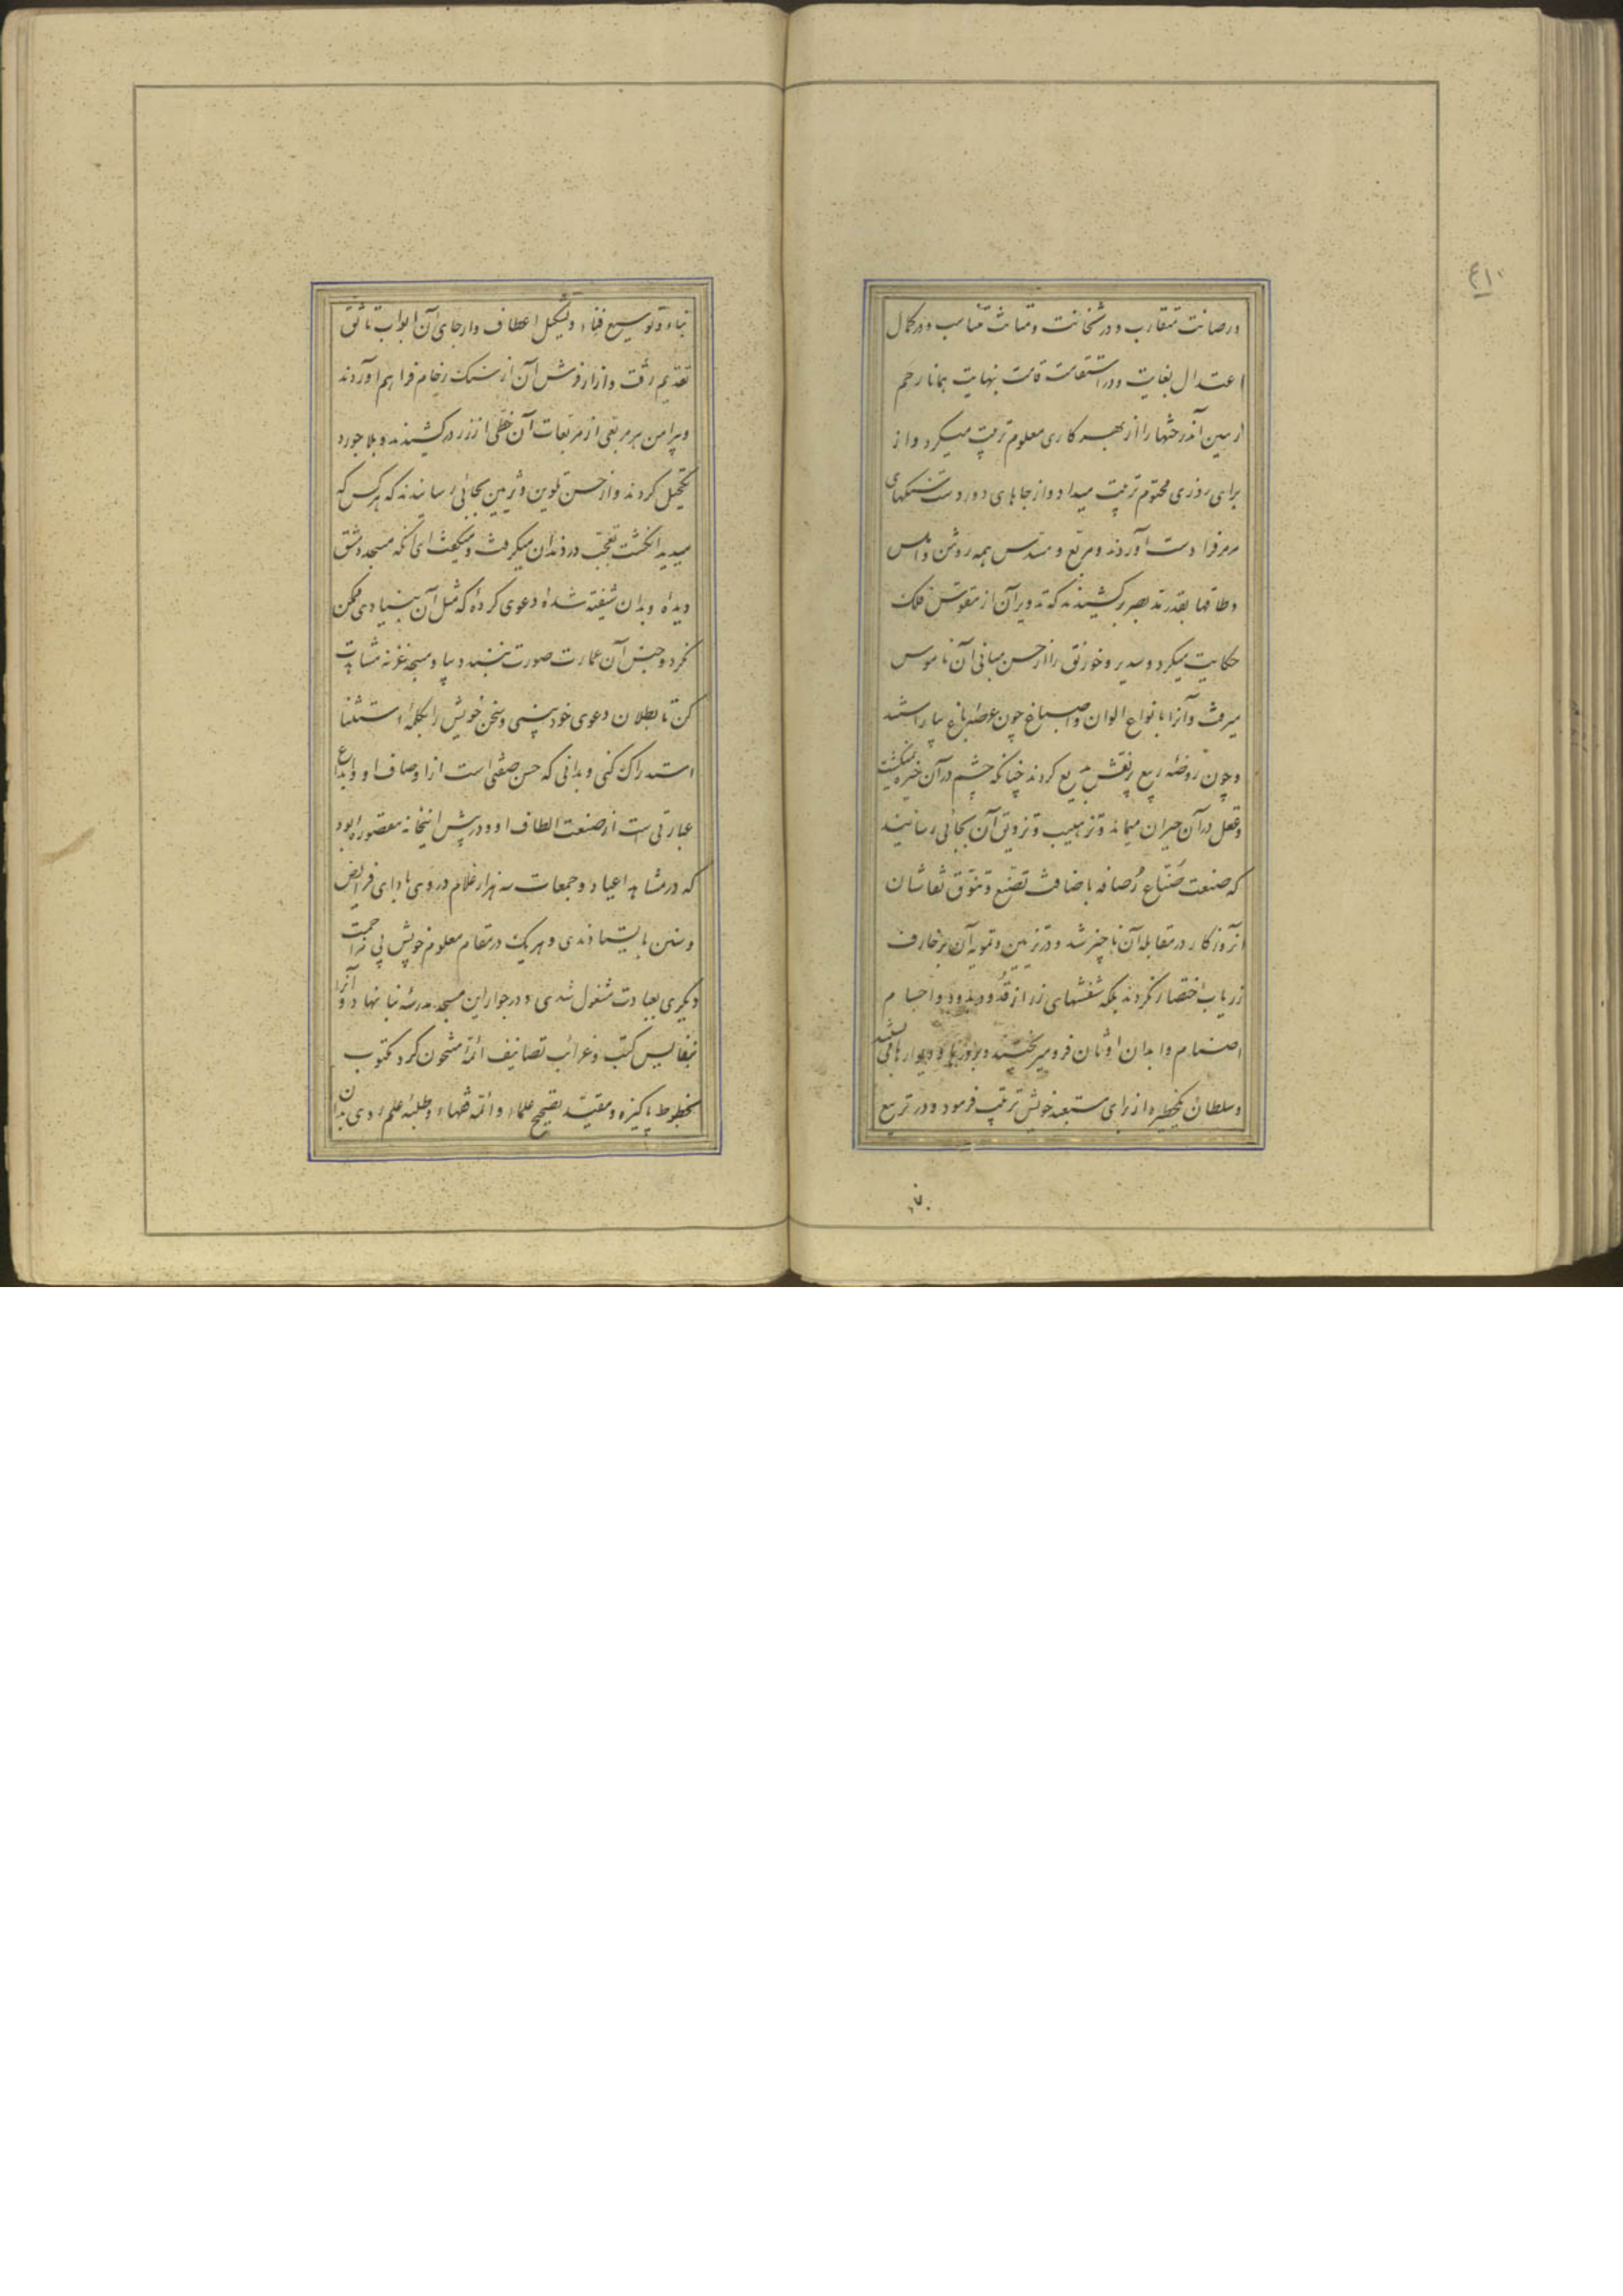 ۴۱۰
و رصانت متقارب و در شخانت و متانت متناسب و در کمال
اعتدال بغایت و در استقامت قامت بنهایت همانا رحم
زمین آن درختها را از بهر کاری معلوم تربیت میکرد و از
برای روزی محتوم ترتیب میداد و از جاهای دوردست سنگهای
مرمر فرا دست آوردند مربع و مسدس همه روشن و املس
و طاقها بقدر مد بصر برکشیدند که تدویر آن از مقوس فلک
حکایت میکرد و سدیر و خورنق را از حسن مبانی آن ناموس
میرفت و آنرا بانواع الوان و اصباغ چون عرصه باغ بیاراستند
و چون روضه ربیع پر نقش بدیع کردند چنانکه چشم در آن خیره میگشت
و عقل در آن حیران میماند و تذهیب و تزویق آن بجائی رسانیدند
که صنعت صناع رصافه باضافت تصنع و تنوق نقاشان
آنروزگار در مقابله آن ناچیز شد و در تزیین و تمویه آن بزخارف
زریاب اختصار نکردند بلکه شفشهای زر از قدود بدود و اجسام
اصنام و ابدان اوثان فرو میریختند و بر درها و دیوارها می‌بستند
و سلطان یکخطیره از برای مستعبد خویش ترتیب فرمود و در تربیع
بناء و توسیع فناء و تشکیل اعطاف و ارجای آن ابواب تانق
تقدیم رفت و ازار و فرش آن از سنگ رخام فراهم آوردند
و پیرامن هر مربعی از مربعات آن خطی از زر درکشیدند و بلاجورد
تکحیل کردند و از حسن تلوین و تزیین بجائی رسانیدند که هر کس که
میدید انگشت تعجب در دندان میگرفت و میگفت ای آنکه مسجد دمشق
دیدۀ و بدان شیفته شدۀ و دعوی کردۀ که مثل آن بنیادی ممکن
نگردد و جنس آن عمارت صورت نبندد بیا و مسجد غزنه مشاهدت
کن تا بطلان دعوی خود ببینی و سخن خویش را بکلمۀ استثنا
استدراک کنی و بدانی که حسن صفتی است از اوصاف او و ابداع
عبارتی است از صنعت الطاف او و در پیش اینخانه مقصورۀ بود
که در مشاهد اعیاد و جمعات سه هزار غلام در وی باداء فرایض
و سنن بایستادندی و هر یک در مقام معلوم خویش بی مزاحمت
دیگری بعبادت مشغول شدی و در جوار این مسجد مدرسه بنا نهاد و آنرا
بنفایس کتب و غرائب تصانیف ائمه مشحون کرد مکتوب
بخطوط پاکیزه و مقید بتصحیح علماء و ائمه فقهاء و طلبه علم روی بدان